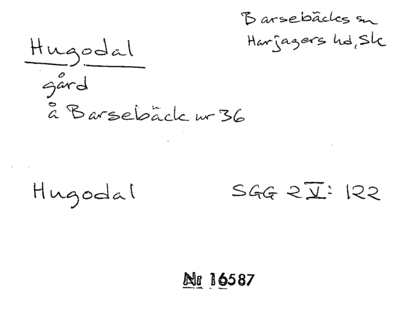 Barsebäcks sn
Harjagers hd, Sk
Hugodal
gård
å Barsebäck nr 36
Hugodal SGG 2 V: 122
Nr 16587